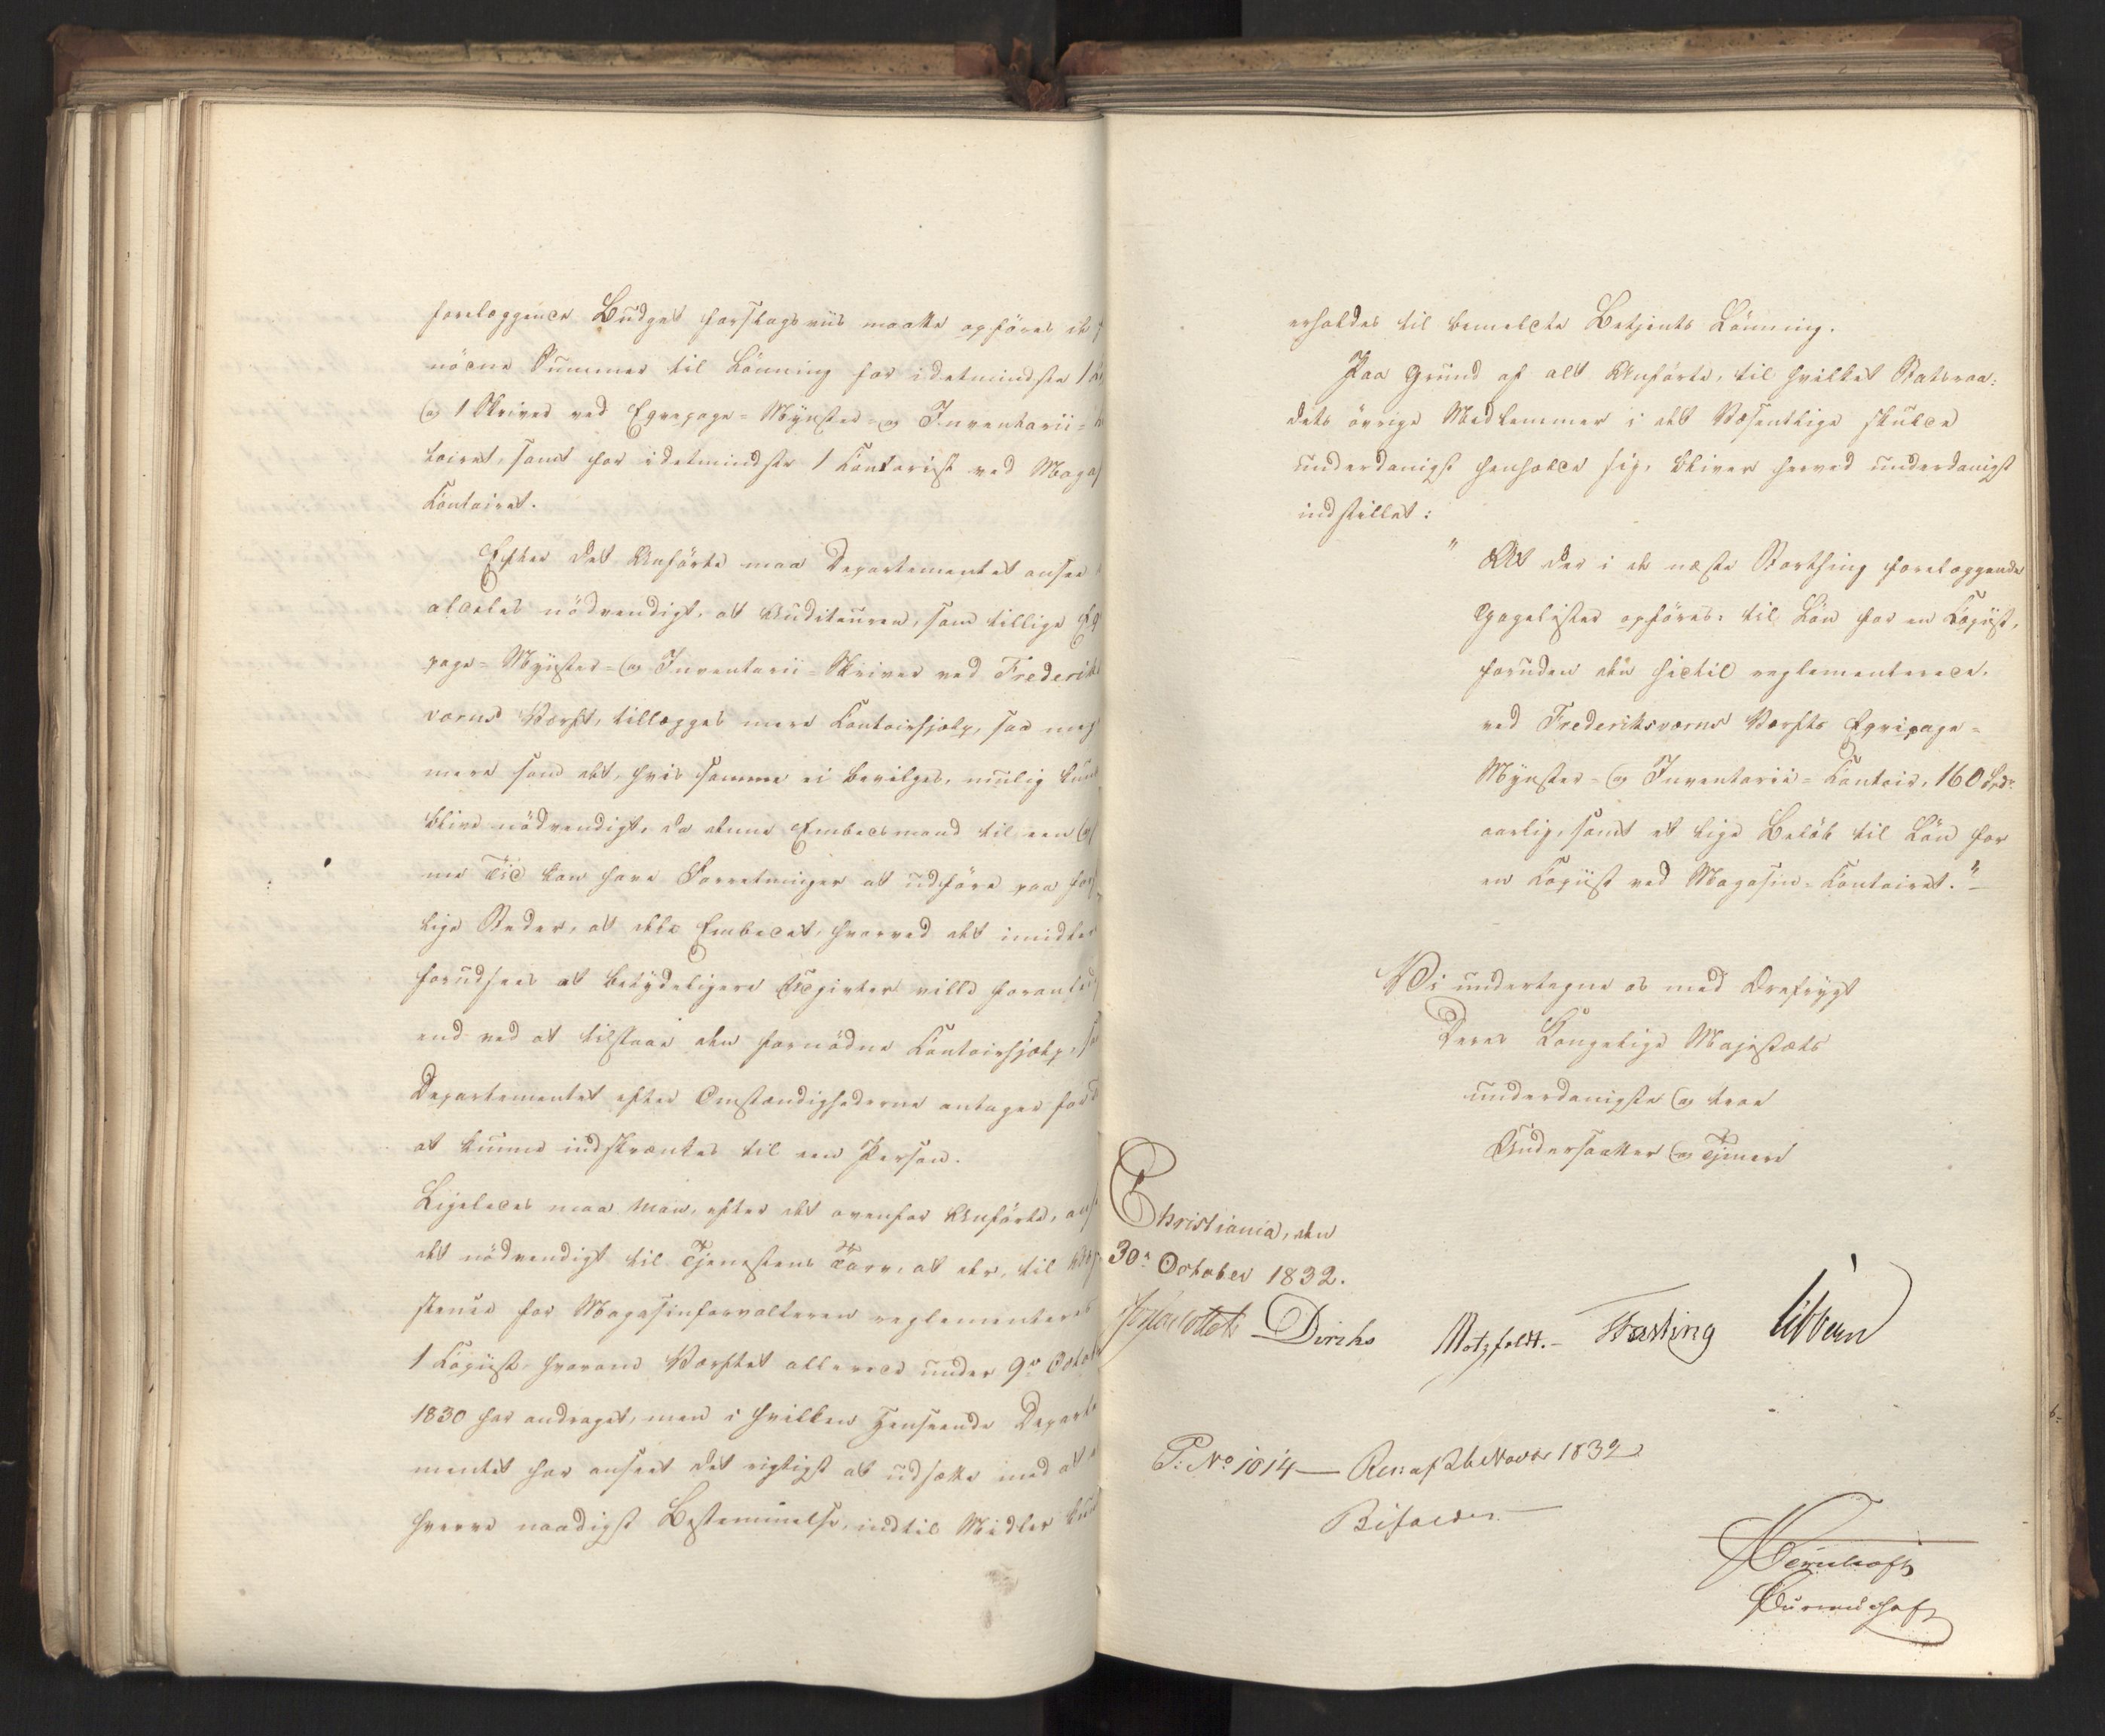 forelæggende Budget forslagsviis maatte opföres de
nödne Summer til Lönning for idetmindste 1
og 1 Skriver ved Eqvipage-Mynster- og Inventarii-
toiret, samt for idetmindste 1 Contorist ved Magas
Contoiret.
Efter det Anförte maa Departementet ansee
aldeles nödvendigt, at Auditeuren, som tillige Eqvi
page-Mynster- og Inventarii-Skriver ved Frederiks
værns Værft, tillægges mere Contoirhjælp, saa meget
mere som det, hvis samme ei bevilges, muelig kunde
blive nödvendigt, da denne Embedsmand til een og
me Tid kan have Forretninger at udföre paa forskjel
lige Steder, at dele Embedet, hvorved det imidler
forudsees at betydeligere Udgivter ville foranled
end ved at tilstaae den fornödne Contoirhjælp, 
Departementet efter Omstændighederne antager for
at kunne indskrænkes til een Person.
Ligeledes maa man, efter det ovenfor Anförte, ansee
det nödvendigt til Tjenestens Tarv, at der, til
stence for Magasinforvalteren reglementeres
1 Copiist, hvorom Værftet allerede under 9de Octob
1830 har andraget, men i hvilken Henseende Departe
mentet har anseet det rigtigst at udsætte med at
hverve naadigst Bestemmelse, indtil Midler kunde
erholdes til bemeldte Betjents Lönning.
Paa Grund af alt Anförte, til hvilket Statsraa-
dets övrige Medlemmer i det Væsentlige skulde
underdanigst henholde sig, bliver herved underdanigst
indstillet:
"At der i de næste Storthing forelæggende
Gagelister opföres: til Lön for en Copiist,
foruden den hidtil reglementerede,
ved Frederiksværns Værfts Eqvipage-
Mynster- og Inventarii-Contoir, 160 Spd.
aarlig, samt et lige Belöb til Lön for
en Copiist ved Magasin-Contoiret."
Vi undertegne os med Ærefrygt
Deres Kongelige Majestæts
underdanigste og troe
Undersaatter og Tjenere
Christiania, den
30te October 1832.
Collett Diriks Motzfeldt. Fasting Vibbern
P. No 1014 — Res af 26 Novbr 1832
Bifaldes.
Due